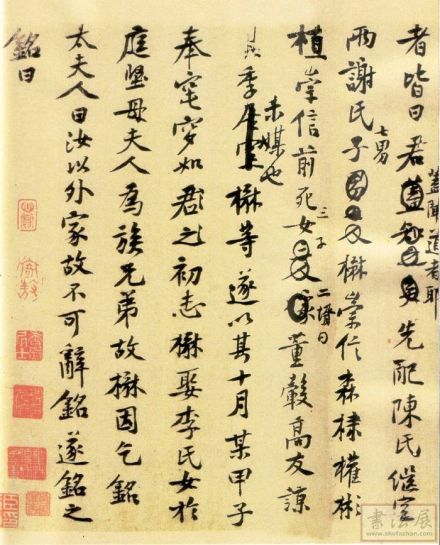 者皆曰君蓋聞道者耶先配陳氏繼室
兩謝氏子七男楙崇信森棣權彬
植崇信前死女三子二壻曰董轂高友諒
其季未媒也楙等遂以其十月某甲子
奉窀穸如君之初志楙娶李氏女於
庭堅母夫人為族兄弟故楙因乞銘
太夫人曰汝以外家故不可辭銘遂銘之
銘曰
書法展
www.shufazhan.com